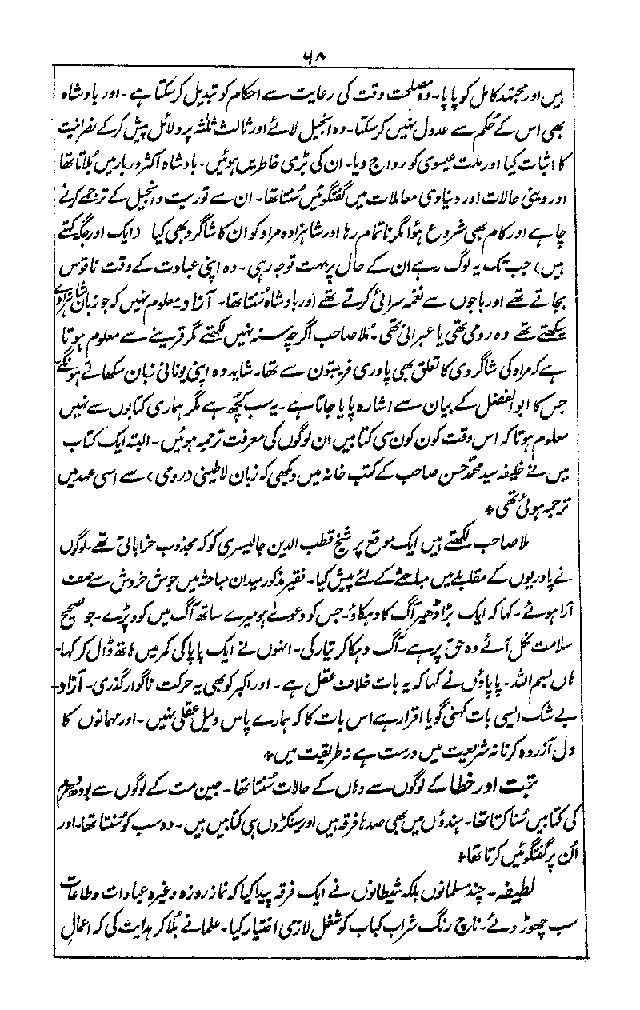 ۶۸
ہیں اور مجتہد کامل کو پاپا۔ وہ مصلحت وقت کی رعایت سے احکام کو تبدیل کر سکتا ہے۔ اور بادشاہ
بھی اس کے حکم سے عدول نہیں کر سکتا۔ وہ انجیل لائے اور ثالث ثلثہ پر دلائل پیش کر کے نصرانیت
کا اثبات کیا اور ملت عیسوی کو رواج دیا۔ ان کی بڑی خاطریں ہوئیں۔ بادشاہ اکثر دربار میں بلاتا تھا
اور دینی حالات اور دنیاوی معاملات میں گفتگوئیں سنتا تھا۔ ان سے توریت و انجیل کے ترجمے کرنے
چاہے اور کام بھی شروع ہوا مگر ناتمام رہا اور شاہزادہ مراد کو ان کا شاگرد بھی کیا (ایک اور جگہ کہتے
ہیں) جب تک یہ لوگ رہے ان کے حال پر بہت توجہ رہی۔ وہ اپنی عبادت کے وقت ناقوس
بجاتے تھے اور باجوں سے نغمہ سرائی کرتے تھے اور بادشاہ سنتا تھا۔ آزاد۔ معلوم نہیں کہ جو زبان شاہزادے
سیکھتے تھے وہ رومی تھی یا عبرانی تھی۔ ملا صاحب اگرچہ سنہ نہیں لکھتے مگر قرینے سے معلوم ہوتا
ہے کہ مراد کی شاگردی کا تعلق بھی پادری فریبتون سے تھا۔ شاید وہ اپنی یونانی زبان سکھاتے ہونگے
جس کا ابوالفضل کے بیان سے اشارہ پایا جاتا ہے۔ یہ سب کچھ ہے مگر ہماری کتابوں سے نہیں
معلوم ہوتا کہ اس وقت کون کون سی کتابیں ان لوگوں کی معرفت ترجمہ ہوئیں۔ البتہ ایک کتاب
میں نے خلیفہ سید محمد حسن صاحب کے کتب خانہ میں دیکھی کہ زبان لاطینی (رومی) سے اسی عہد میں
ترجمہ ہوئی تھی *
ملا صاحب لکھتے ہیں ایک موقع پر شیخ قطب الدین جالیسری کو کہ مجذوب خراباتی تھے۔ لوگوں
نے پادریوں کے مقابلے میں مباحثے کے لئے پیش کیا۔ فقیر مذکور میدان مباحثہ میں جوش خروش سے صف
آرا ہوئے۔ کہا کہ ایک بڑا ڈھیر آگ کا دہکاؤ۔ جس کو دعوےٰ ہو میرے ساتھ آگ میں کود پڑے۔ جو صحیح
سلامت نکل آئے وہ حق پر ہے۔ آگ دہکا کر تیار کی۔ انہوں نے ایک پاپا کی کمر میں ہاتھ ڈال کر کہا۔
ہاں بسم اللہ۔ پاپاؤں نے کہا کہ یہ بات خلاف عقل ہے۔ اور اکبر کو بھی یہ حرکت ناگوار گذری۔ آزاد۔
بے شک ایسی بات کہنی گویا اقرار ہے اس بات کا کہ ہمارے پاس دلیل عقلی نہیں۔ اور مہمانوں کا
دل آزردہ کرنا نہ شریعت میں درست ہے نہ طریقت میں *
تبت اور خطا کے لوگوں سے وہاں کے حالات سنتا تھا۔ جین مت کے لوگوں سے بودھ دھرم
کی کتابیں سنا کرتا تھا۔ ہندوؤں میں بھی صدہا فرقہ ہیں اور سینکڑوں ہی کتابیں ہیں۔ وہ سب کو سنتا تھا۔ اور
اُن پر گفتگوئیں کرتا تھا *
لطیفہ۔ چند مسلمانوں بلکہ شیطانوں نے ایک فرقہ پیدا کیا کہ نماز روزہ وغیرہ عبادات و طاعات
سب چھوڑ دئے۔ ناچ رنگ شراب کباب کو شغل لازمی اختیار کیا۔ علما نے بلا کر ہدایت کی کہ اعمال